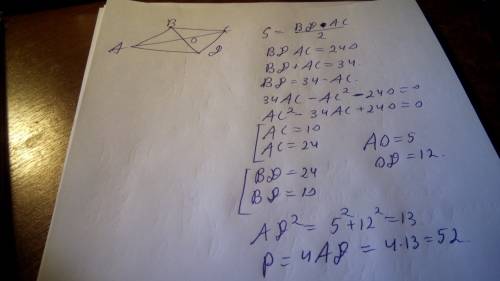 B C
A O D
S = BD • AC / 2
BD AC = 240
BD + AC = 34
BD = 34 - AC.
34AC - AC² - 240 = 0
AC² - 34AC + 240 = 0
[ AC = 10
AC = 24
AO = 5
OD = 12.
[ BD = 24
BD = 10
AD² = 5² + 12² = 13
P = 4AD = 4·13 = 52